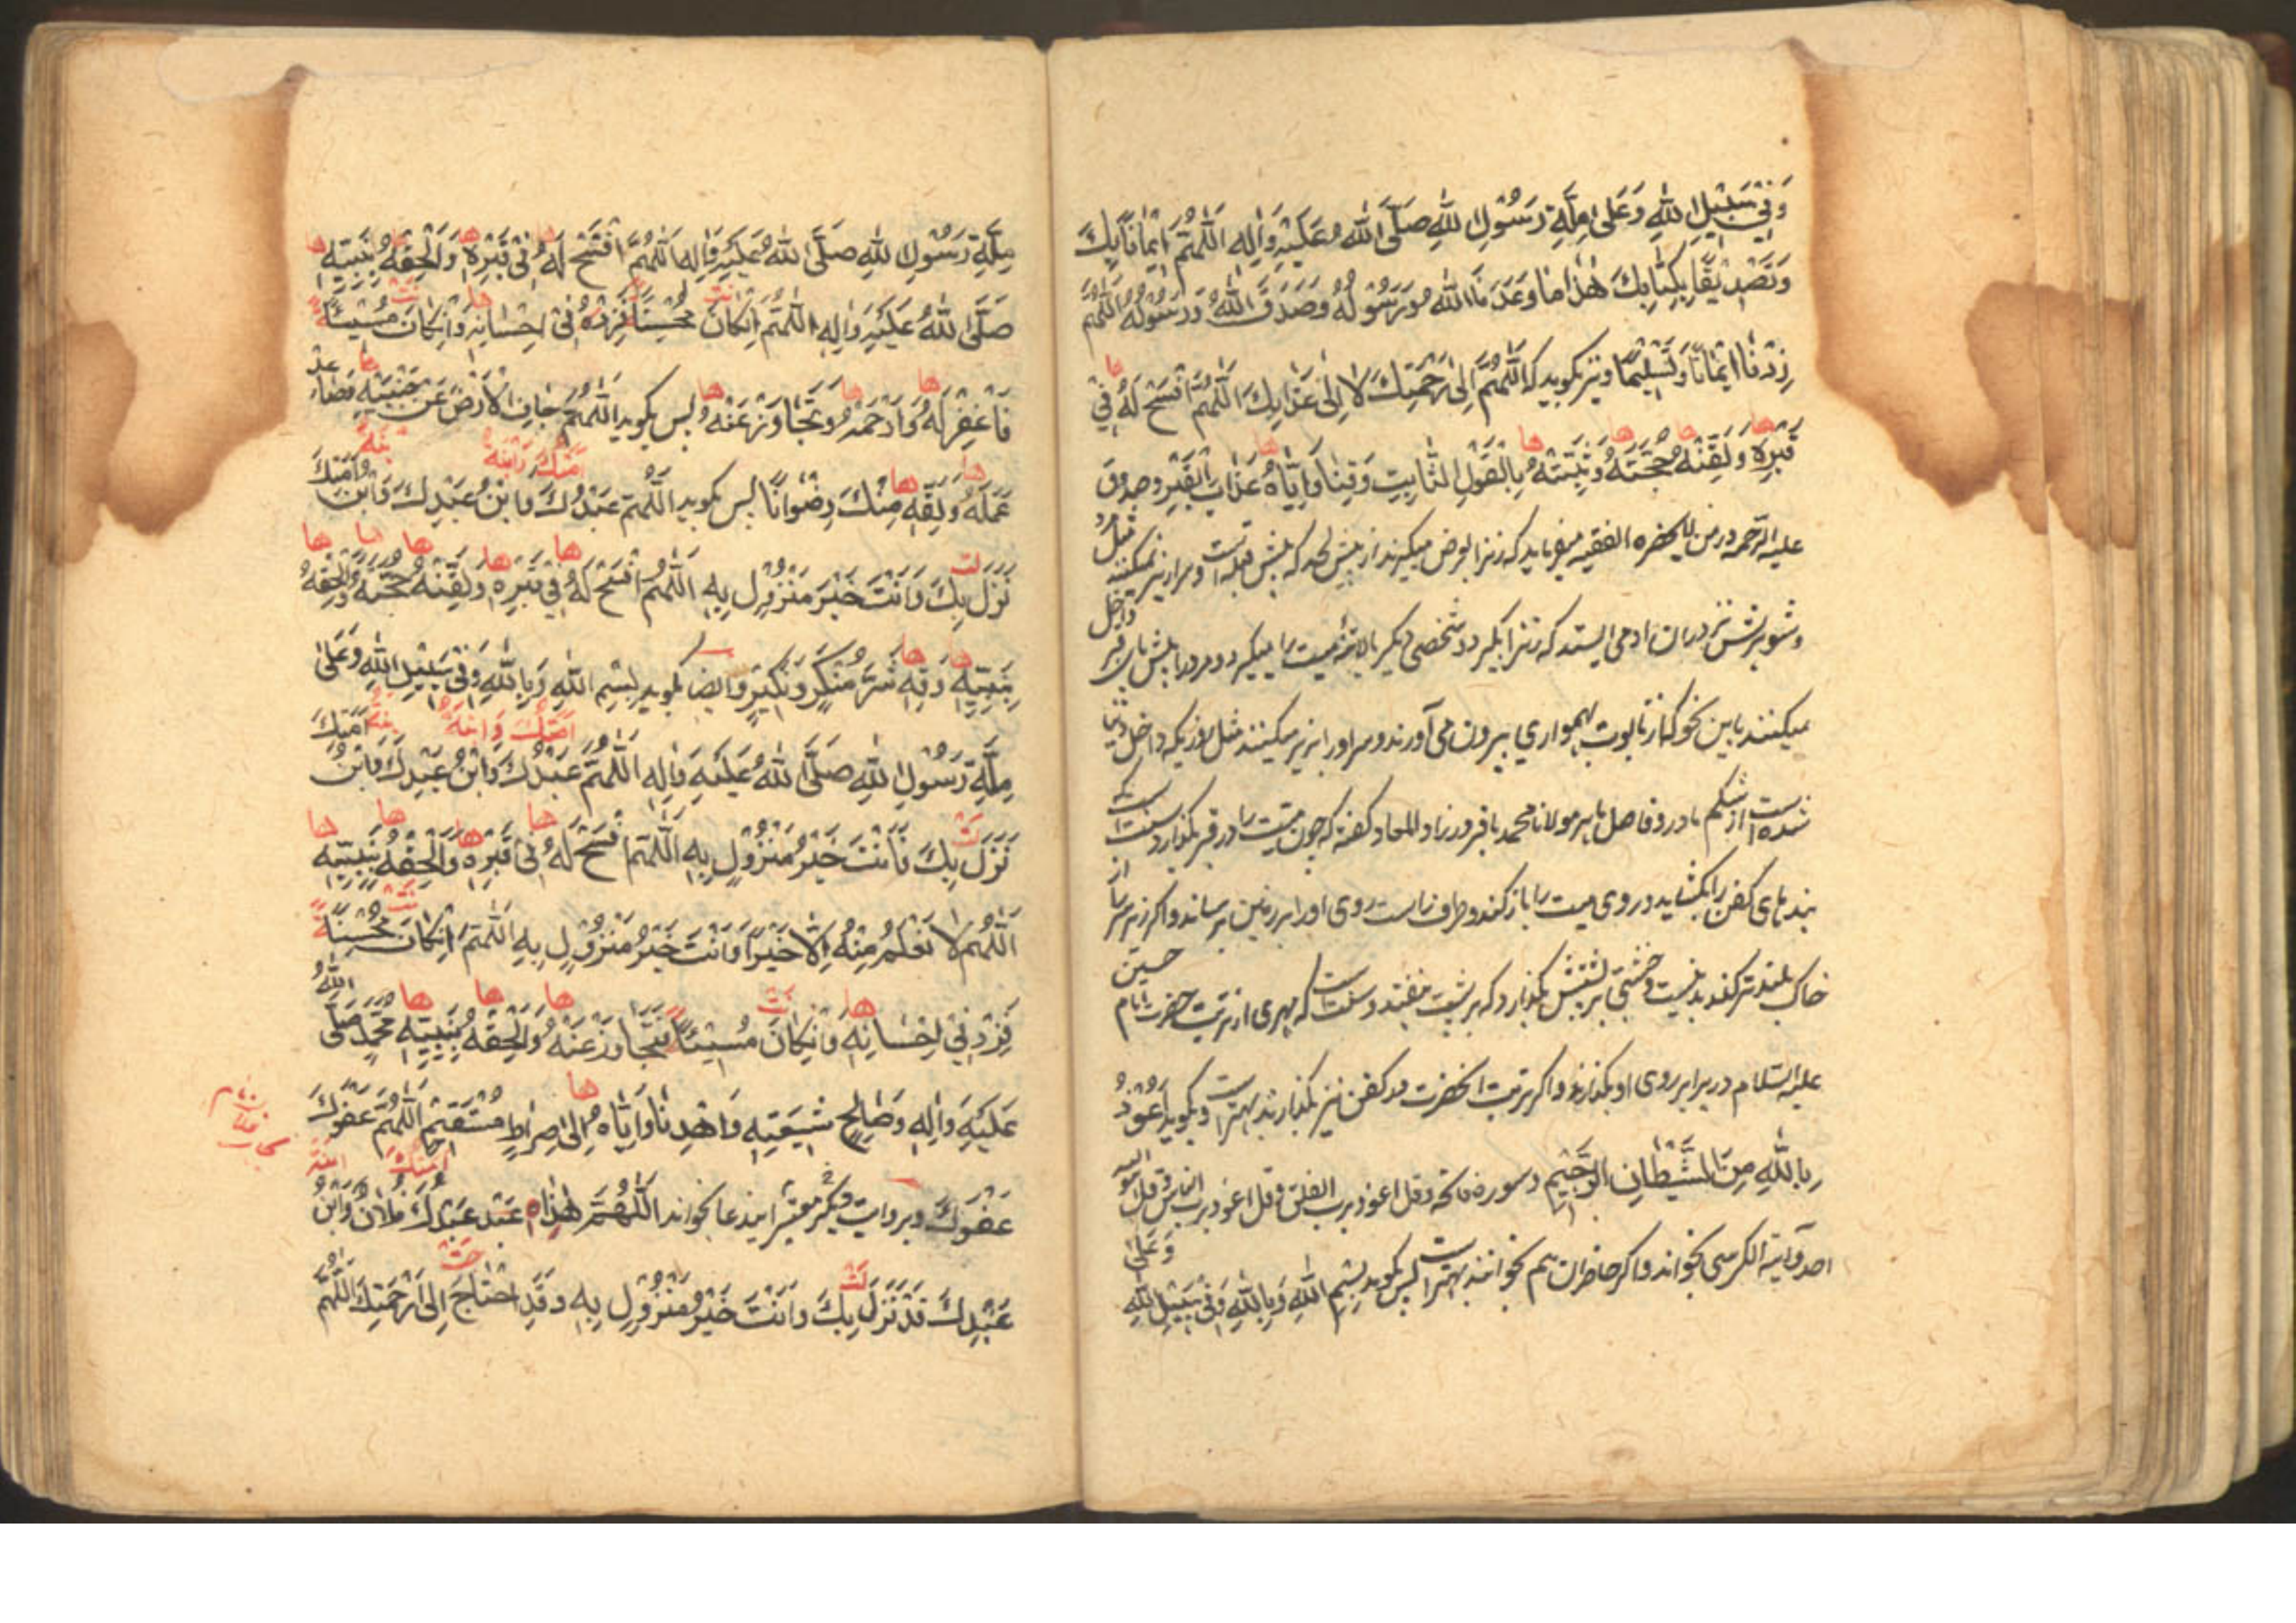 وَفِي سَبِيلِ اللهِ وَعَلى مِلَّةِ رَسُوْلِ اللهِ صَلَّى اللهُ عَلَيْهِ وَاٰلِهِ اَللّٰهُمَّ اِيْمَانًا بِكَ
وَتَصْدِيْقًا بِكِتَابِكَ هٰذَا مَا وَعَدَنَا اللهُ وَرَسُوْلُهُ وَصَدَقَ اللهُ وَرَسُوْلُهُ اَللّٰهُمَّ
زِدْنَا اِيْمَانًا وَتَسْلِيْمًا و نیز بگوید که اَللّٰهُمَّ اِلىٰ رَحْمَتِكَ لَا اِلىٰ عَذَابِكَ اَللّٰهُمَّ افْسَحْ لَهُ فِيْ ها
قَبْرِهِ وَلَقِّنْهُ حُجَّتَهُ وَثَبِّتْهُ بِالْقَوْلِ الثَّابِتِ وَقِنَا وَاِيَّاهُ عَذَابَ الْقَبْرِ وصدوق ها ها ها ها ها
علیه الرحمه در من لا یحضره الفقیه میفرماید که زنرا بعرض میگیرند از پیش لحد که پیش قبله است و سرازیر نمیکنند مثل مرد
و شوهرش در ان ادمی ایستد که زنرا بگیرد و شخصی دیگر پایینه میت را میگیرد و مرد را پیش پای قبر داخل
میکنند باین نحو که از تابوت بهمواری بیرون می آورند و سر اورا بزیر میکنند مثل روزیکه داخل دنیا
شده است از شکم مادر و فاضل ماهر مولانا محمد باقر در زاد المعاد گفته که چون میت را در قبر بگذارد سنت است که
بند های کفن را بگشاید و روی میت را باز کند و طرف راست روی اورا بر زمین برساند و اگر زیر سر را از
خاک بلندتر کند بد نیست و خشتی بر پشتش بگذارد که بر پشت نیفتد و سنت است که مهری از تربت حضرت امام حسین
علیه السّلام در برابر روی او بگذارند و اگر تربت انحضرت در کفن نیز بگذارند بهتر است و بگوید اَعُوْذُ
بِاللهِ مِنَ الشَّيْطَانِ الرَّجِيْمِ و سوره فاتحه و قل اعوذ برب الفلق و قل اعوذ برب الناس و قل هو الله
احد و آیة الکرسی بخواند و اگر حاضران هم بخوانند بهتر است پس بگوید بِسْمِ اللهِ وَبِاللهِ وَفِيْ سَبِيْلِ اللهِ وَعَلىٰ
مِلَّةِ رَسُوْلِ اللهِ صَلَّى اللهُ عَلَيْهِ وَاٰلِهِ اَللّٰهُمَّ افْسَحْ لَهُ فِيْ قَبْرِهِ وَاَلْحِقْهُ بِنَبِيِّهِ ها ها ها ها
صَلَّى اللهُ عَلَيْهِ وَاٰلِهِ اَللّٰهُمَّ اِنْ كَانَ مُحْسِنًا فَزِدْهُ فِيْ اِحْسَانِهِ وَاِنْ كَانَ مُسِيْئًا
فَاغْفِرْ لَهُ وَارْحَمْهُ وَتَجَاوَزْ عَنْهُ پس بگوید اَللّٰهُمَّ جَافِ الْاَرْضَ عَنْ جَنْبَيْهِ وَضَاعِفْ ها ها ها ها
عَمَلَهُ وَلَقِّهِ مِنْكَ رِضْوَانًا پس بگوید اَللّٰهُمَّ عَبْدُكَ وَابْنُ عَبْدِكَ وَابْنُ اَمَتِكَ ها ها
نَزَلَ بِكَ وَاَنْتَ خَيْرُ مَنْزُوْلٍ بِهِ اَللّٰهُمَّ افْسَحْ لَهُ فِيْ قَبْرِهِ وَلَقِّنْهُ حُجَّتَهُ وَاَلْحِقْهُ ها ها ها ها ها
بِنَبِيِّهِ وَقِهِ شَرَّ مُنْكَرٍ وَنَكِيْرٍ و ایضا بگوید بِسْمِ اللهِ وَبِاللهِ وَفِيْ سَبِيْلِ اللهِ وَعَلىٰ ها ها
مِلَّةِ رَسُوْلِ اللهِ صَلَّى اللهُ عَلَيْهِ وَاٰلِهِ اَللّٰهُمَّ عَبْدُكَ وَابْنُ عَبْدِكَ وَابْنُ اَمَتِكَ
نَزَلَ بِكَ وَاَنْتَ خَيْرُ مَنْزُوْلٍ بِهِ اَللّٰهُمَّ افْسَحْ لَهُ فِيْ قَبْرِهِ وَاَلْحِقْهُ بِنَبِيِّهِ ها ها ها ها
اَللّٰهُمَّ لَا نَعْلَمُ مِنْهُ اِلَّا خَيْرًا وَاَنْتَ خَيْرُ مَنْزُوْلٍ بِهِ اَللّٰهُمَّ اِنْ كَانَ مُحْسِنًا
فَزِدْ فِيْ اِحْسَانِهِ وَاِنْ كَانَ مُسِيْئًا فَتَجَاوَزْ عَنْهُ وَاَلْحِقْهُ بِنَبِيِّهِ مُحَمَّدٍ صَلَّى اللهُ ها ها ها ها
عَلَيْهِ وَاٰلِهِ وَصَالِحِ شِيْعَتِهِ وَاهْدِنَا وَاِيَّاهُ اِلىٰ صِرَاطٍ مُسْتَقِيْمٍ اَللّٰهُمَّ عَفْوَكَ ها
عَفْوَكَ و بروایت دیگر معتبر ایندعا بخواند اَللّٰهُمَّ هٰذَا عَبْدُكَ فُلَانٌ وَابْنُ
عَبْدِكَ قَدْ نَزَلَ بِكَ وَاَنْتَ خَيْرُ مَنْزُوْلٍ بِهِ وَقَدِ احْتَاجَ اِلىٰ رَحْمَتِكَ اَللّٰهُمَّ